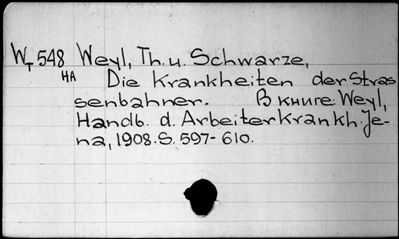 W_T 548 Weyl, Th. u. Schwarze,
HA Die Krankheiten der Stras
senbahner. В книге: Weyl,
Handb. d. Arbeiterkrankh. Je-
na, 1908. S. 597-610.